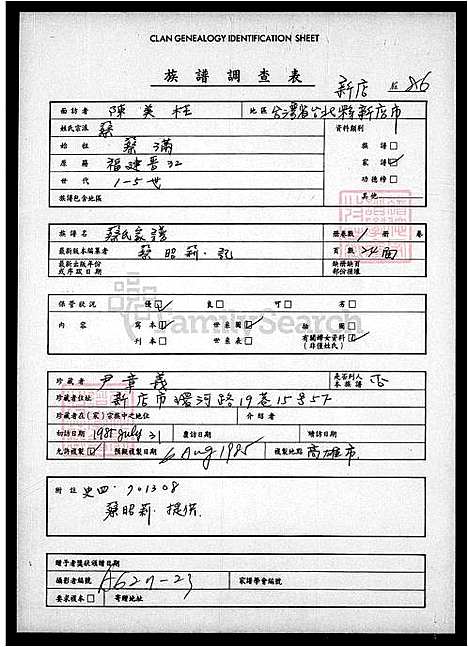 CLAN GENEALOGY IDENTIFICATION SHEET
族譜調查表
新店 86
面訪者 陳美桂 地區 台灣省台北縣新店市
姓氏宗派 蔡 資料類別
始祖 蔡滿 族譜□
原籍 福建晉江 家譜☑
世代 1-5世 功德榜□
族譜包含地區 其他
族譜名 蔡氏家譜 冊卷數 1 冊 卷
最新版本編纂者 蔡昭莉·記 頁數 24面
最新出版年份或序跋日期 缺冊缺頁部份種壞
保管狀況 優☑ 良□ 可□ 劣□
內容 寫本☑ 世系圖☑ 插圖□
刊本□ 世系表□ 有關婦女資料☑ (非僅姓氏)
FamilySearch
珍藏者 尹章義 是否列入本族譜 否
珍藏者住址 新店市環河路19巷15号5F
珍藏者在(家)宗族中之地位 介紹者
初訪日期 1985 July 31 覆訪日期 晴訪日期
允許複製☑ 預擬複製日期 6 Aug 1985 複製地點 高雄市
附註 史四·701308
蔡昭莉·提供.
贈予者獎狀頒贈日期
攝影者編號 A627-23 家譜學會編號
要求複本□ 寄贈地址